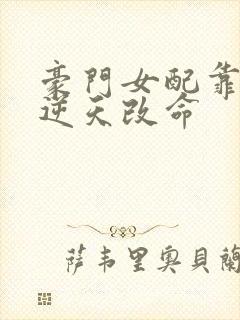 豪門女配靠
逆天改命
萨韦里奥贝蘭